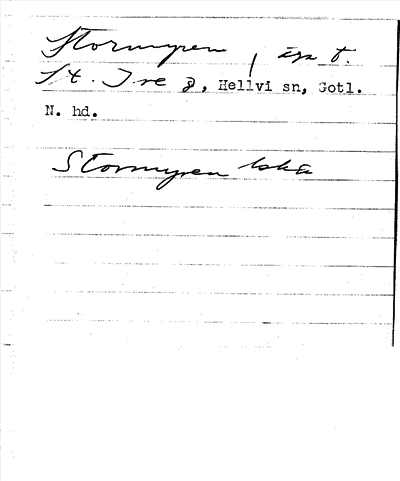 Stormyren, äga t.
St. Ire 3, Hellvi sn, Gotl.
N. hd.
Stormyren loka